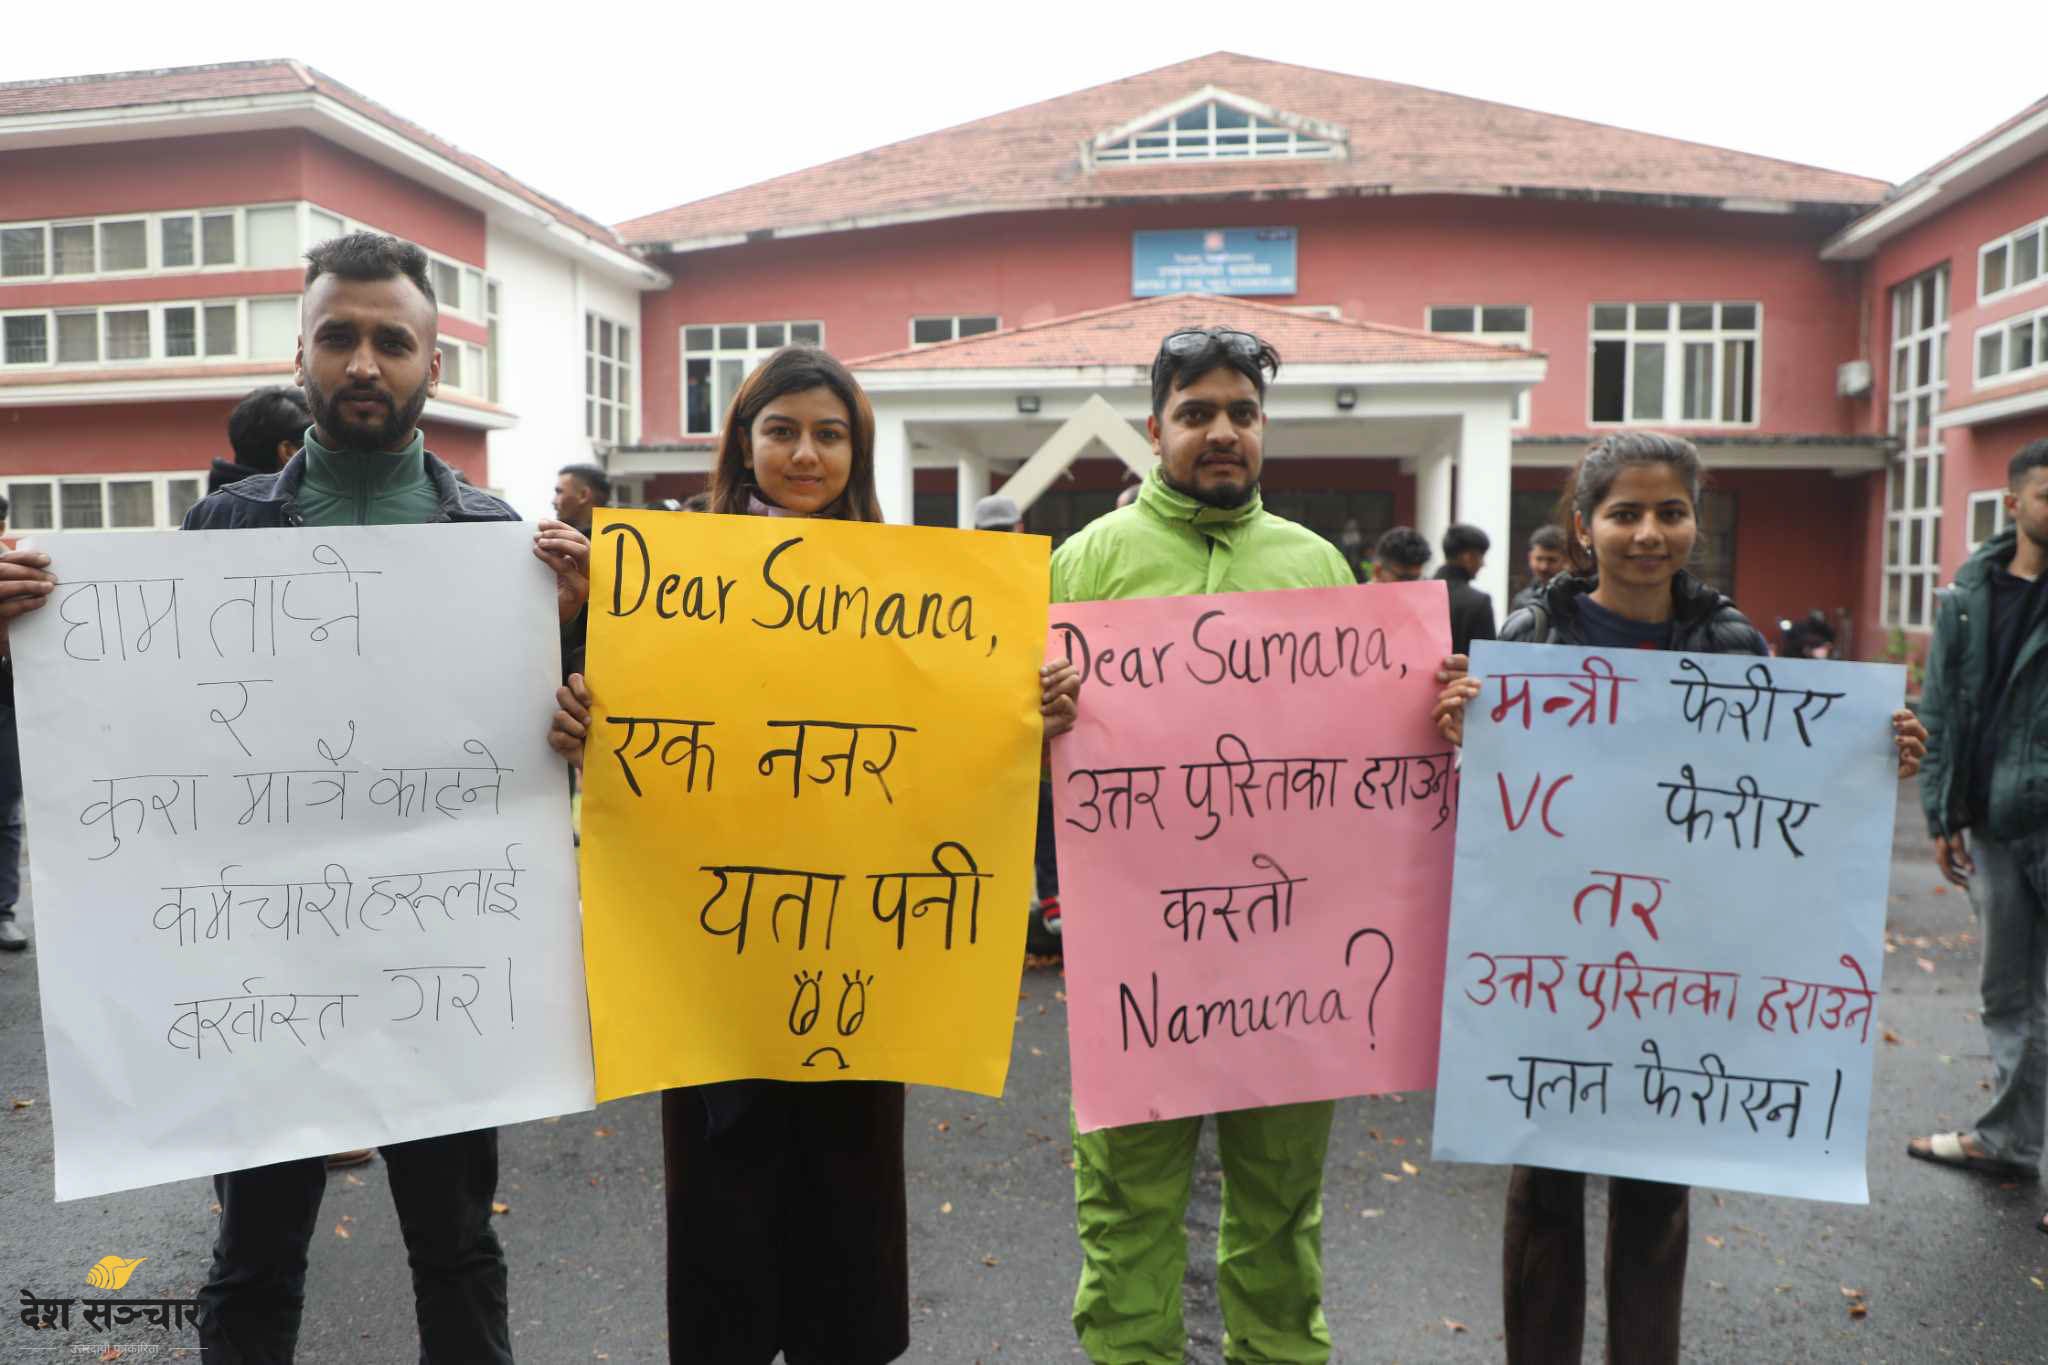 घाम ताप्ने
र
कुरा मात्रै काट्ने
कर्मचारीहरूलाई
बर्खास्त गर!
Dear Sumana,
एक नजर
यता पनी
Dear Sumana,
उत्तर पुस्तिका हराउनु
कस्तो
Namuna?
मन्त्री फेरीए
VC फेरीए
तर
उत्तर पुस्तिका हराउने
चलन फेरीएन!
देश सञ्चार
उत्तरदायी पत्रकारिता